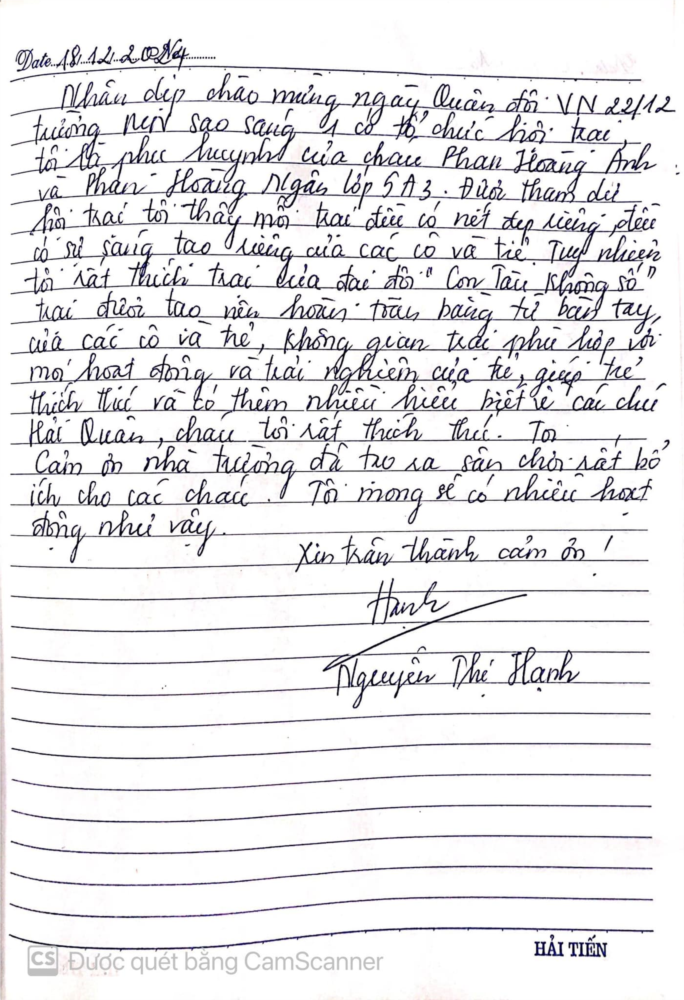 Date 18.12.2024
Nhân dịp chào mừng ngày Quân đội VN 22/12
trường MN sao sáng 1 có tổ chức hội trại,
tôi là phụ huynh của cháu Phan Hoàng Anh
và Phan Hoàng Ngân lớp 5A3. Được tham dự
hội trại tôi thấy mỗi trại đều có nét đẹp riêng, đều
có sự sáng tạo riêng của các cô và trẻ. Tuy nhiên
tôi rất thích trại của đại đội "Con Tàu không số"
trại được tạo nên hoàn toàn bằng từ bàn tay
của các cô và trẻ, không gian trại phù hợp với
mọi hoạt động và trải nghiệm của trẻ, giúp trẻ
thích thú và có thêm nhiều hiểu biết về các chú
Hải Quân, cháu tôi rất thích thú. Tôi
Cảm ơn nhà trường đã tạo ra sân chơi rất bổ
ích cho các cháu. Tôi mong sẽ có nhiều hoạt
động như vậy.
Xin trân thành cảm ơn!
Hạnh
Nguyễn Thị Hạnh
HẢI TIẾN
CS Được quét bằng CamScanner